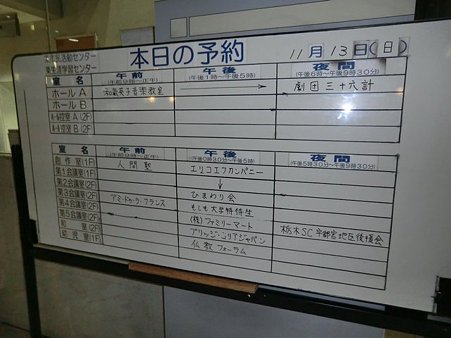 市民活動センター
生涯学習センター
本日の予約
11月13日(日)
室名 午前 午後 夜間
(午後1時～午後5時) (午後6時～午後9時30分)
ホールA 音楽教室 → 劇団三十六計
ホールB
(2F)
(2F)
室名 午前 午後 夜間
(午後5時30分～午後9時30分)
創作室(1F) 人間塾 エリコエフカンパニー
第1会議室(2F) ↓
第2会議室(2F) ひまわり会
第3会議室(2F) アミドゥラ・フランス もしも大学特待生
第4会議室(2F) (株)ファミリーマート
第5会議室(2F) ブリッジ・コリアジャパン 栃木SC宇都宮地区後援会
和室(2F) 仏教フォーラム
(1F)